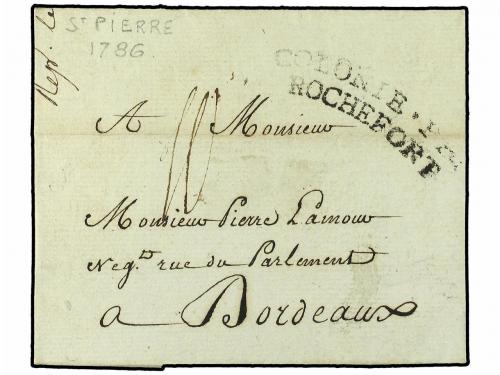 St PIERRE
1786
Rep. le
COLONIE . PAR
ROCHEFORT
A Monsieur
Monsieur Pierre Lamour
Neg.t rue du Parlement
a Bordeaux